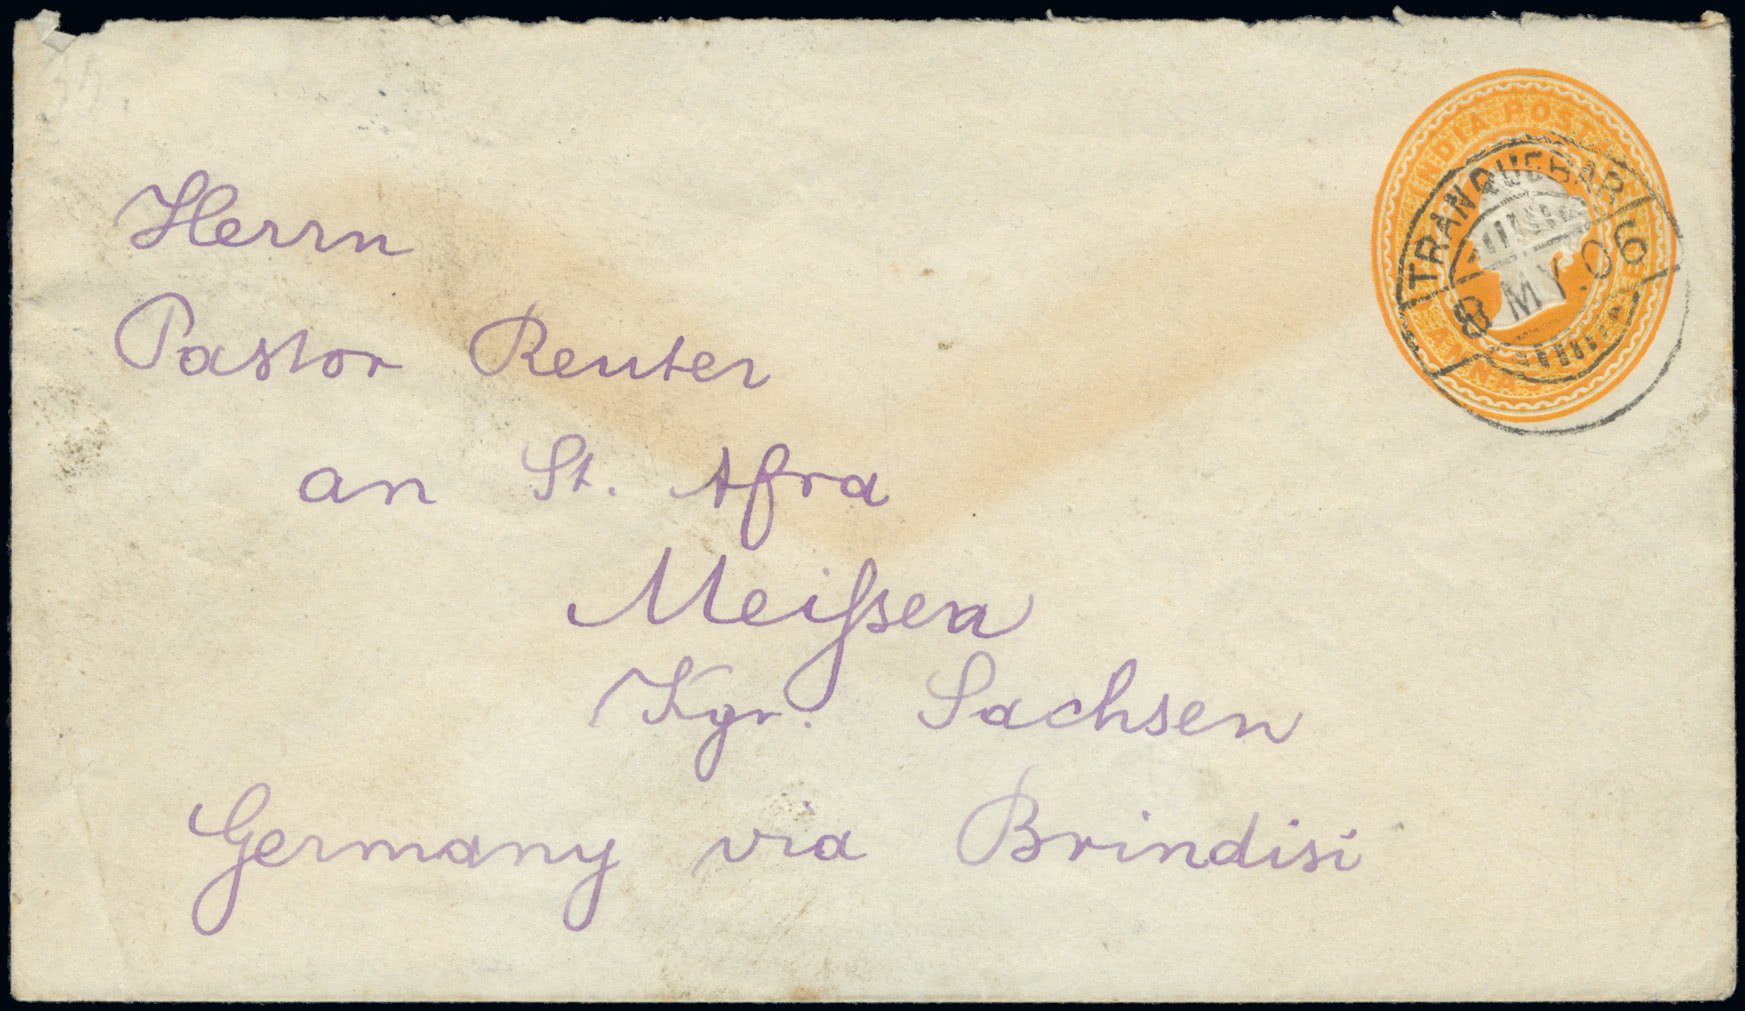 INDIA POSTAGE
TRANQUEBAR
8 MY. 06
Herrn
Pastor Reuter
an St. Afra
Meißen
Kgr. Sachsen
Germany via Brindisi